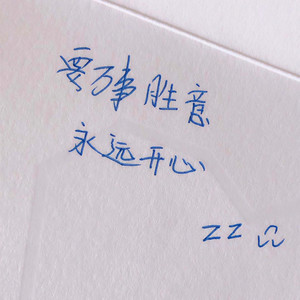 要万事胜意
永远开心
ZZ